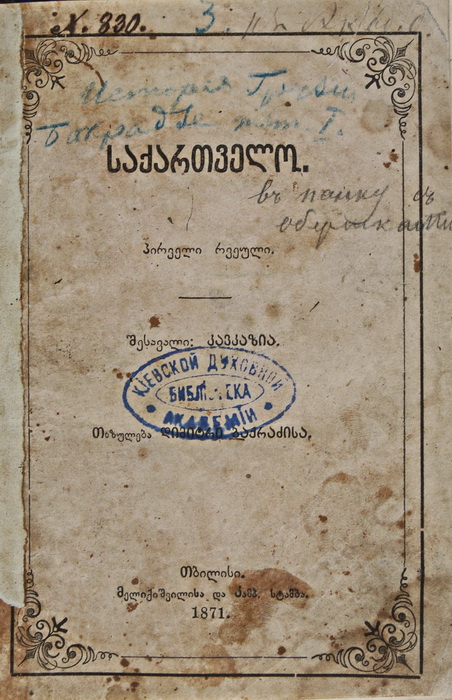 N. 830. 3.
Исторія Грузіи
Бакрадзе
საქართველო.
въ папку съ
პირველი რვეული.
შესავალი: კავკაზია.
КІЕВСКОЙ ДУХОВНОЙ
БИБЛІОТЕКА
АКАДЕМІИ
თხზულება დიმიტრი ბაქრაძისა.
თბილისი.
მელიქიშვილისა და კამპ. სტამბა.
1871.